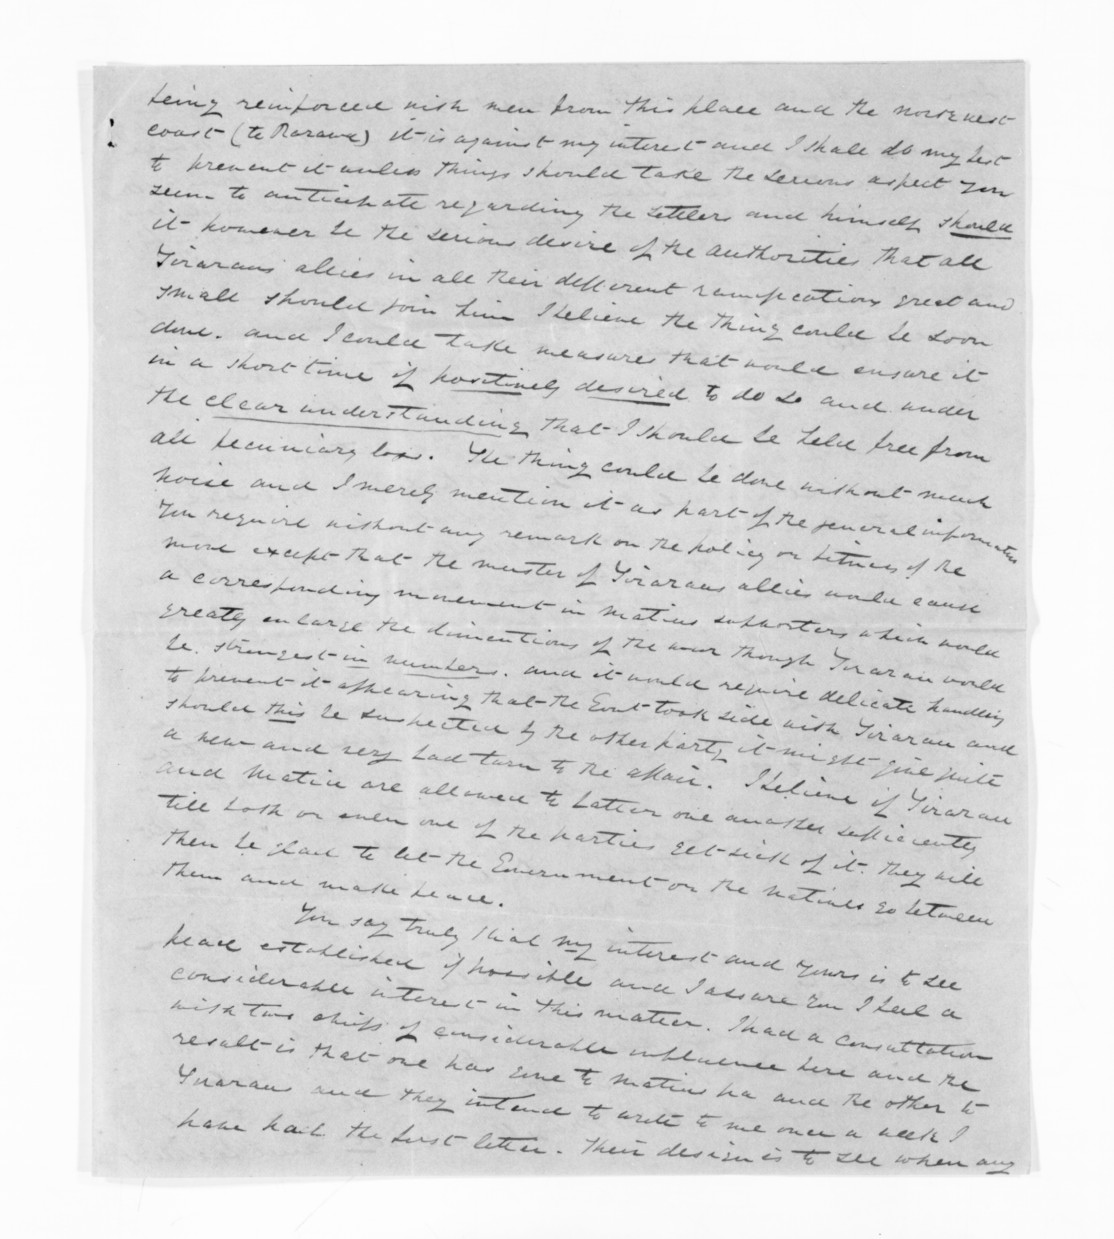 being reinforced with men from this place and the north west
coast (te Rarawa) it is against my interest and I shall do my best
to prevent it unless things should take the serious aspect you
seem to anticipate regarding the settlers and himself should
it however be the serious desire of the authorities that all
Tirarau's allies in all their different ramifications great and
small should join him I believe the thing could be soon
done. and I could take measures that would ensure it
in a short time if positively desired to do so and under
the clear understanding that I should be held free from
all pecuniary loss. The thing could be done without much
noise and I merely mention it as part of the general information
you require without any remark on the policy or fitness of the
move except that the muster of Tiraraus allies would cause
a corresponding movement in Matius supporters which would
greatly enlarge the dimentions of the war though Tirarau would
be strongest in numbers. and it would require delicate handling
to prevent it appearing that the Govt took side with Tirarau and
should this be suspected by the other party it might give quite
a new and very bad turn to the affair. I believe if Tirarau
and Matiu are allowed to batter one another sufficiently
till both or even one of the parties get sick of it. they will
then be glad to let the Government or the natives go between
them and make peace.
You say truly that my interest and yours is to see
peace established if possible and I assure you I feel a
considerable interest in this matter. I had a consultation
with two chiefs of considerable influence here and the
result is that one has gone to Matius pa and the other to
Tiraraus and they intend to write to me once a week I
have had the first letter. Their design is to see when any